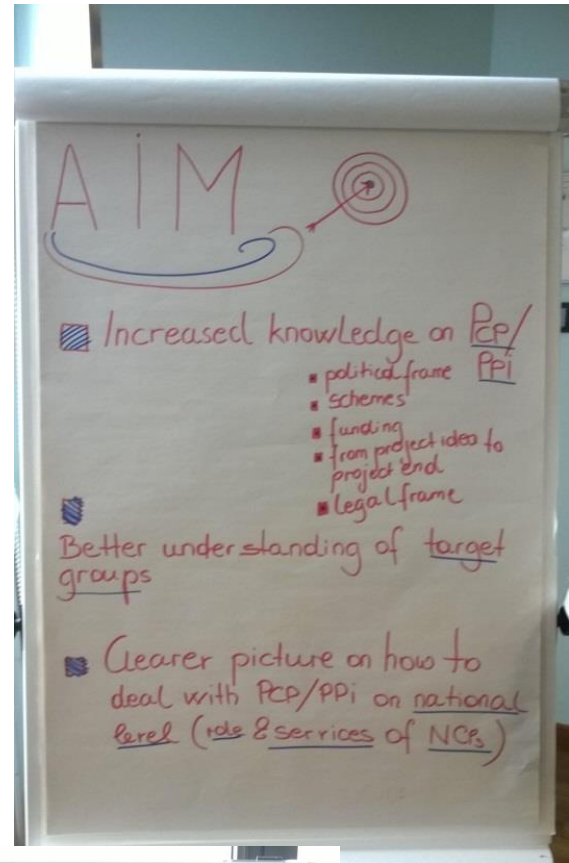 AiM
Increased knowledge on PCP/
PPi
political frame
schemes
funding
from project idea to
project end
legal frame
Better understanding of target
groups
Clearer picture on how to
deal with PCP/PPi on national
level (role & services of NCPs)